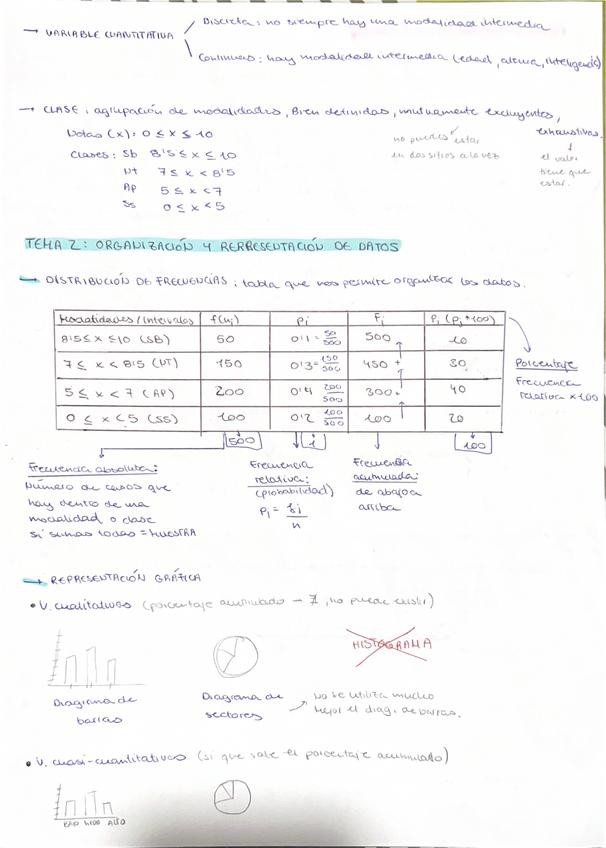 → VARIABLE CUANTITATIVA
Discreta: no siempre hay una modalidad intermedia
Continuas: hay modalidad intermedia (edad, altura, inteligencia)
→ CLASE: agrupación de modalidades, Bien definidas, mutuamente excluyentes,
exhaustivas.
Notas (x): 0 ≤ x ≤ 10
Clases: Sb 8'5 ≤ x ≤ 10
Nt 7 ≤ x < 8'5
Ap 5 ≤ x < 7
Ss 0 ≤ x < 5
no puedes estar
en dos sitios a la vez
el valor
tiene que
estar.
TEMA 2: ORGANIZACIÓN Y REPRESENTACIÓN DE DATOS
→ DISTRIBUCIÓN DE FRECUENCIAS: tabla que nos permite organizar los datos.
Modalidades/Intervalos f(ni) pi Fi Pi (pi*100)
8'5 ≤ x ≤ 10 (SB) 50 0'1 = 50/500 500 10
7 ≤ x < 8'5 (NT) 150 0'3 = 150/500 450 + 30
5 ≤ x < 7 (AP) 200 0'4 200/500 300 + 40
0 ≤ x < 5 (SS) 100 0'2 100/500 100 20
500 1 100
Porcentaje
Frecuencia
relativa x 100
Frecuencia absoluta:
Número de casos que
hay dentro de una
modalidad o clase
si sumas todas = MUESTRA
Frecuencia
relativa:
(probabilidad)
Pi = fi/n
Frecuencia
acumulada:
de abajo a
arriba
→ REPRESENTACIÓN GRÁFICA
• V. cualitativas (porcentaje acumulado → , no puede existir)
Diagrama de
barras
Diagrama de
sectores
HISTOGRAMA
→ No se utiliza mucho
mejor el diag. de barras.
• V. cuasi-cuantitativas (si que sale el porcentaje acumulado)
BAJO MEDIO ALTO